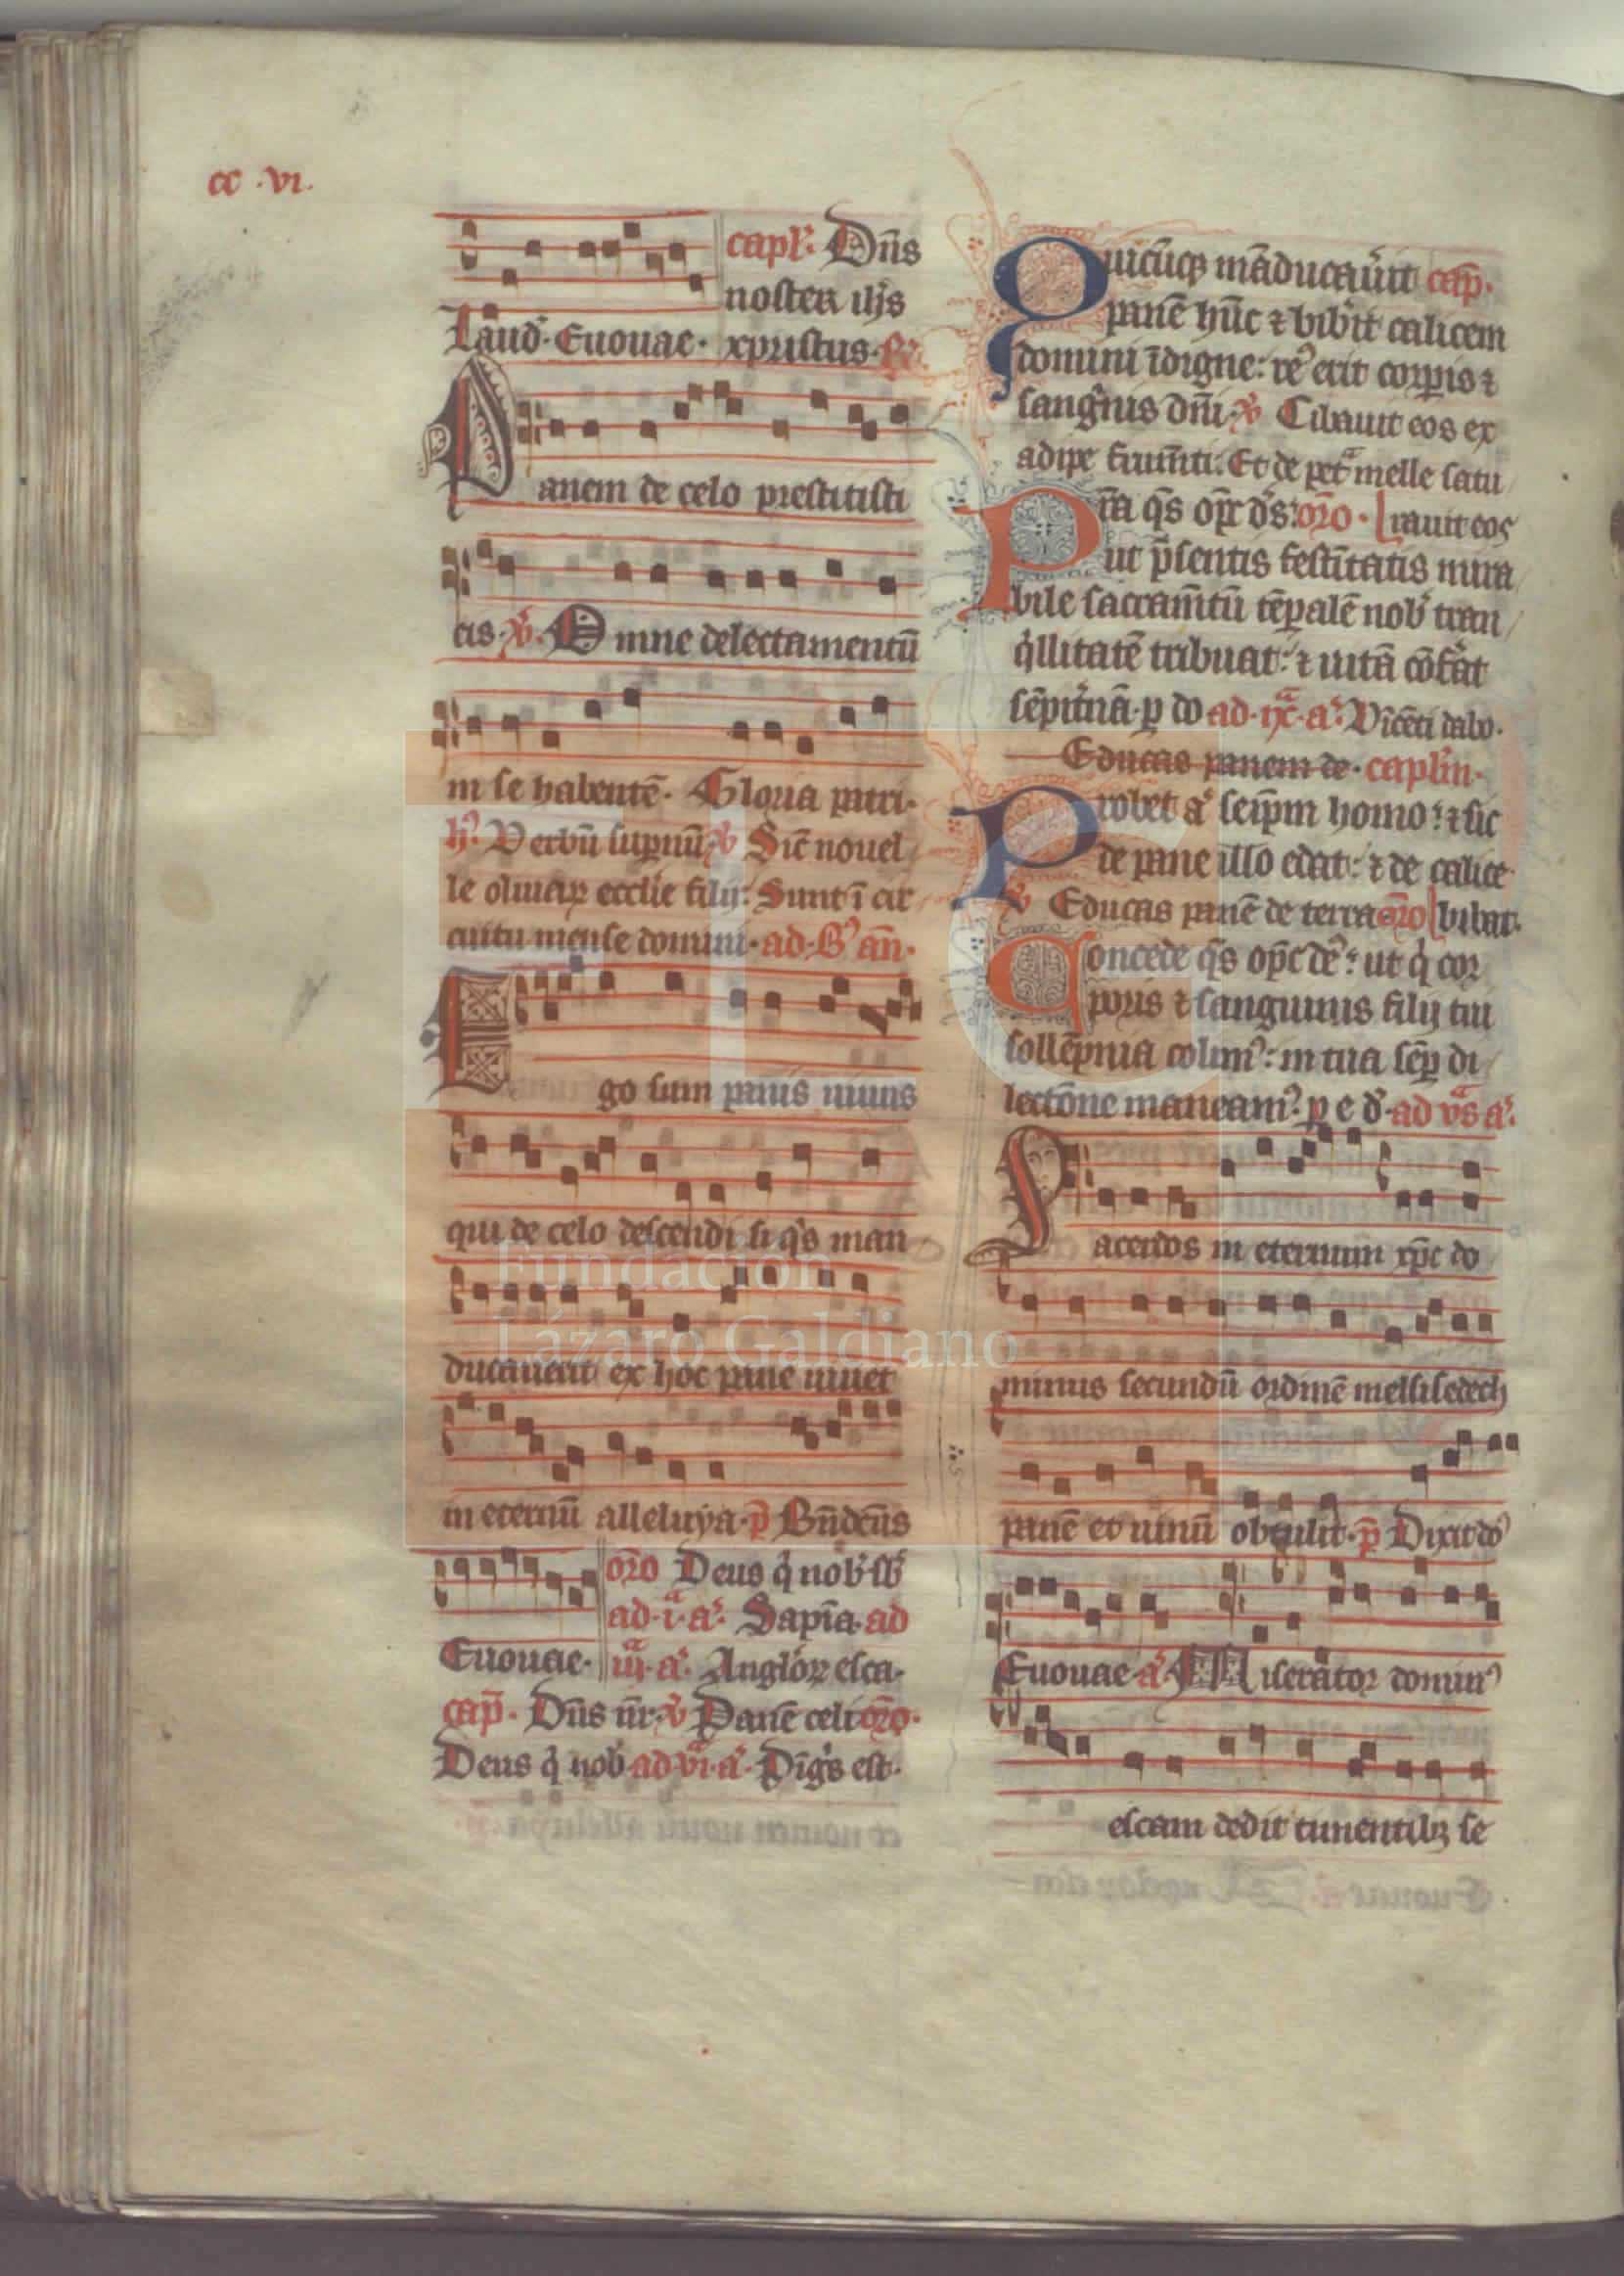 cc .vi.
capl'. Dn̄s
noster ih̄s
Laud'. Euouae. xpristus. R̄.
Panem de celo prestitisti
eis. v̄. Omne delectamentū
in se habentē. Gloria patri.
h̄'. Verbū suꝑnū v̄ Sic̄ nouel
le oliuaꝝ ecclīe filij. Sunt ī cir
cuitu mense domini. ad. B' an̄.
Ego sum panis uiuus
qui de celo descendi si q's man
ducauerit ex hoc pane uiuet
in eternū alleluya. p̄ Bn̄dc̄us
or̄o Deus q' nob' sb'
ad .i.ª a'. Sapīa. ad
Euouae. iij.ª a'. Anglor̄ꝝ esca.
cap̄. Dn̄s nr̄. v̄ Panē celi or̄o.
Deus q' nob' ad vi.ª a'. Dig's est.
Quicūqꝫ māducau'it cap̄.
panē hūc ⁊ bib'it calicem
domini īdigne: re' erit corꝑis ⁊
sang'nis dn̄i. v̄ Cibauit eos ex
adipe frum̄ti. Et de petª melle satu
Pr̄a q̄s op̄c d's: or̄o. rauit eos
ut p̄sentis festītatis mira
bile sacram̄tū tēꝑalē nob' tran
q'llitatē tribuat: ⁊ uitā cōfᵃat
sēpit'nā. ꝑ do ad .ix.ª a'. Vīcēti dabo.
Educas panem de. capl'm.
Probet a' seip̄m homo: ⁊ sic
de pane illo edat: ⁊ de calice
v̄ Educas panē de terra or̄o bibat.
Concede q̄s op̄c de': ut q' cor
poris ⁊ sanguinis filij tui
sollēpnia colim': in tua sēꝑ di
lectōne maneam'. ꝑ e d'. ad v̄s a'.
Sacerdos in eternum xp̄c do
minus secundū ordinē melsisedech
panē et uinū obtulit. p̄ Dixit do'
Euouae. a'. Miserator domin'
escam dedit timentibꝫ se
Fundación
Lázaro Galdiano